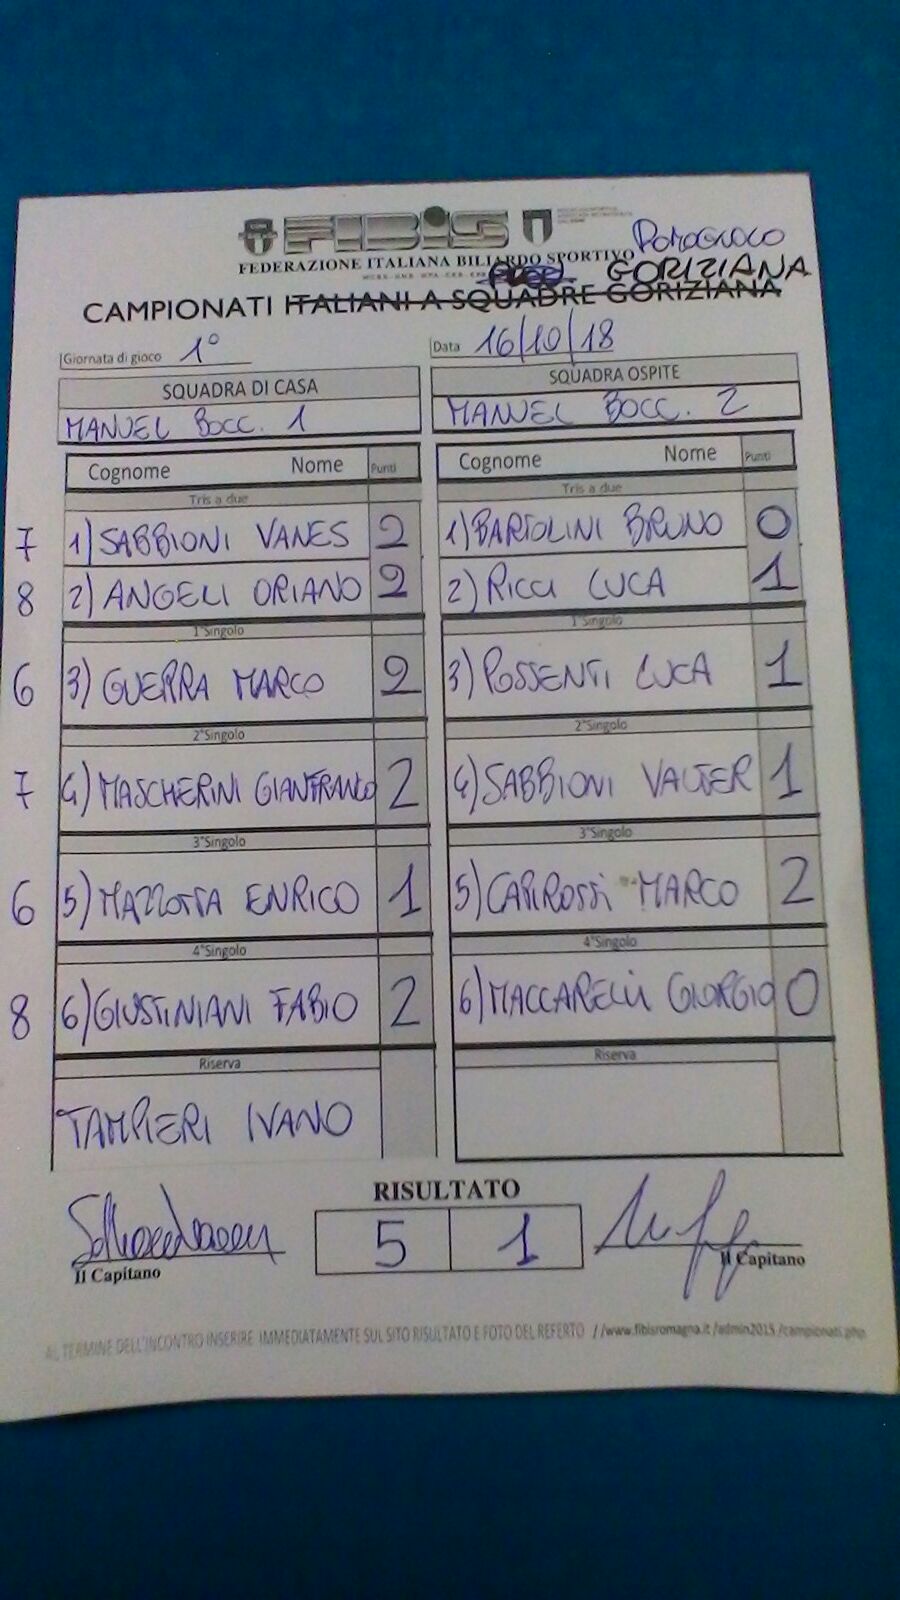 FIBIS
FEDERAZIONE ITALIANA BILIARDO SPORTIVO
ROMAGNOLO
GORIZIANA
CAMPIONATI ITALIANI A SQUADRE GORIZIANA
Giornata di gioco 1°
Data 16/10/18
SQUADRA DI CASA
SQUADRA OSPITE
MANUEL BOCC. 1
MANUEL BOCC. 2
Cognome Nome Punti
Cognome Nome Punti
Tris a due
Tris a due
7 1) SABBIONI VANES 2
1) BARTOLINI BRUNO 0
8 2) ANGELI ORIANO 2
2) RICCI LUCA 1
1°Singolo
1°Singolo
6 3) GUERRA MARCO 2
3) POSSENTI LUCA 1
2°Singolo
2°Singolo
7 4) MASCHERINI GIANFRANCO 2
4) SABBIONI VALTER 1
3°Singolo
3°Singolo
6 5) MAZZOTTA ENRICO 1
5) CAPIROSSI MARCO 2
4°Singolo
4°Singolo
8 6) GIUSTINIANI FABIO 2
6) MACCARELLI GIORGIO 0
Riserva
Riserva
TAMPIERI IVANO
RISULTATO
5 1
Il Capitano
Il Capitano
AL TERMINE DELL'INCONTRO INSERIRE IMMEDIATAMENTE SUL SITO RISULTATO E FOTO DEL REFERTO //www.fibisromagna.it/admin2015/campionati.php